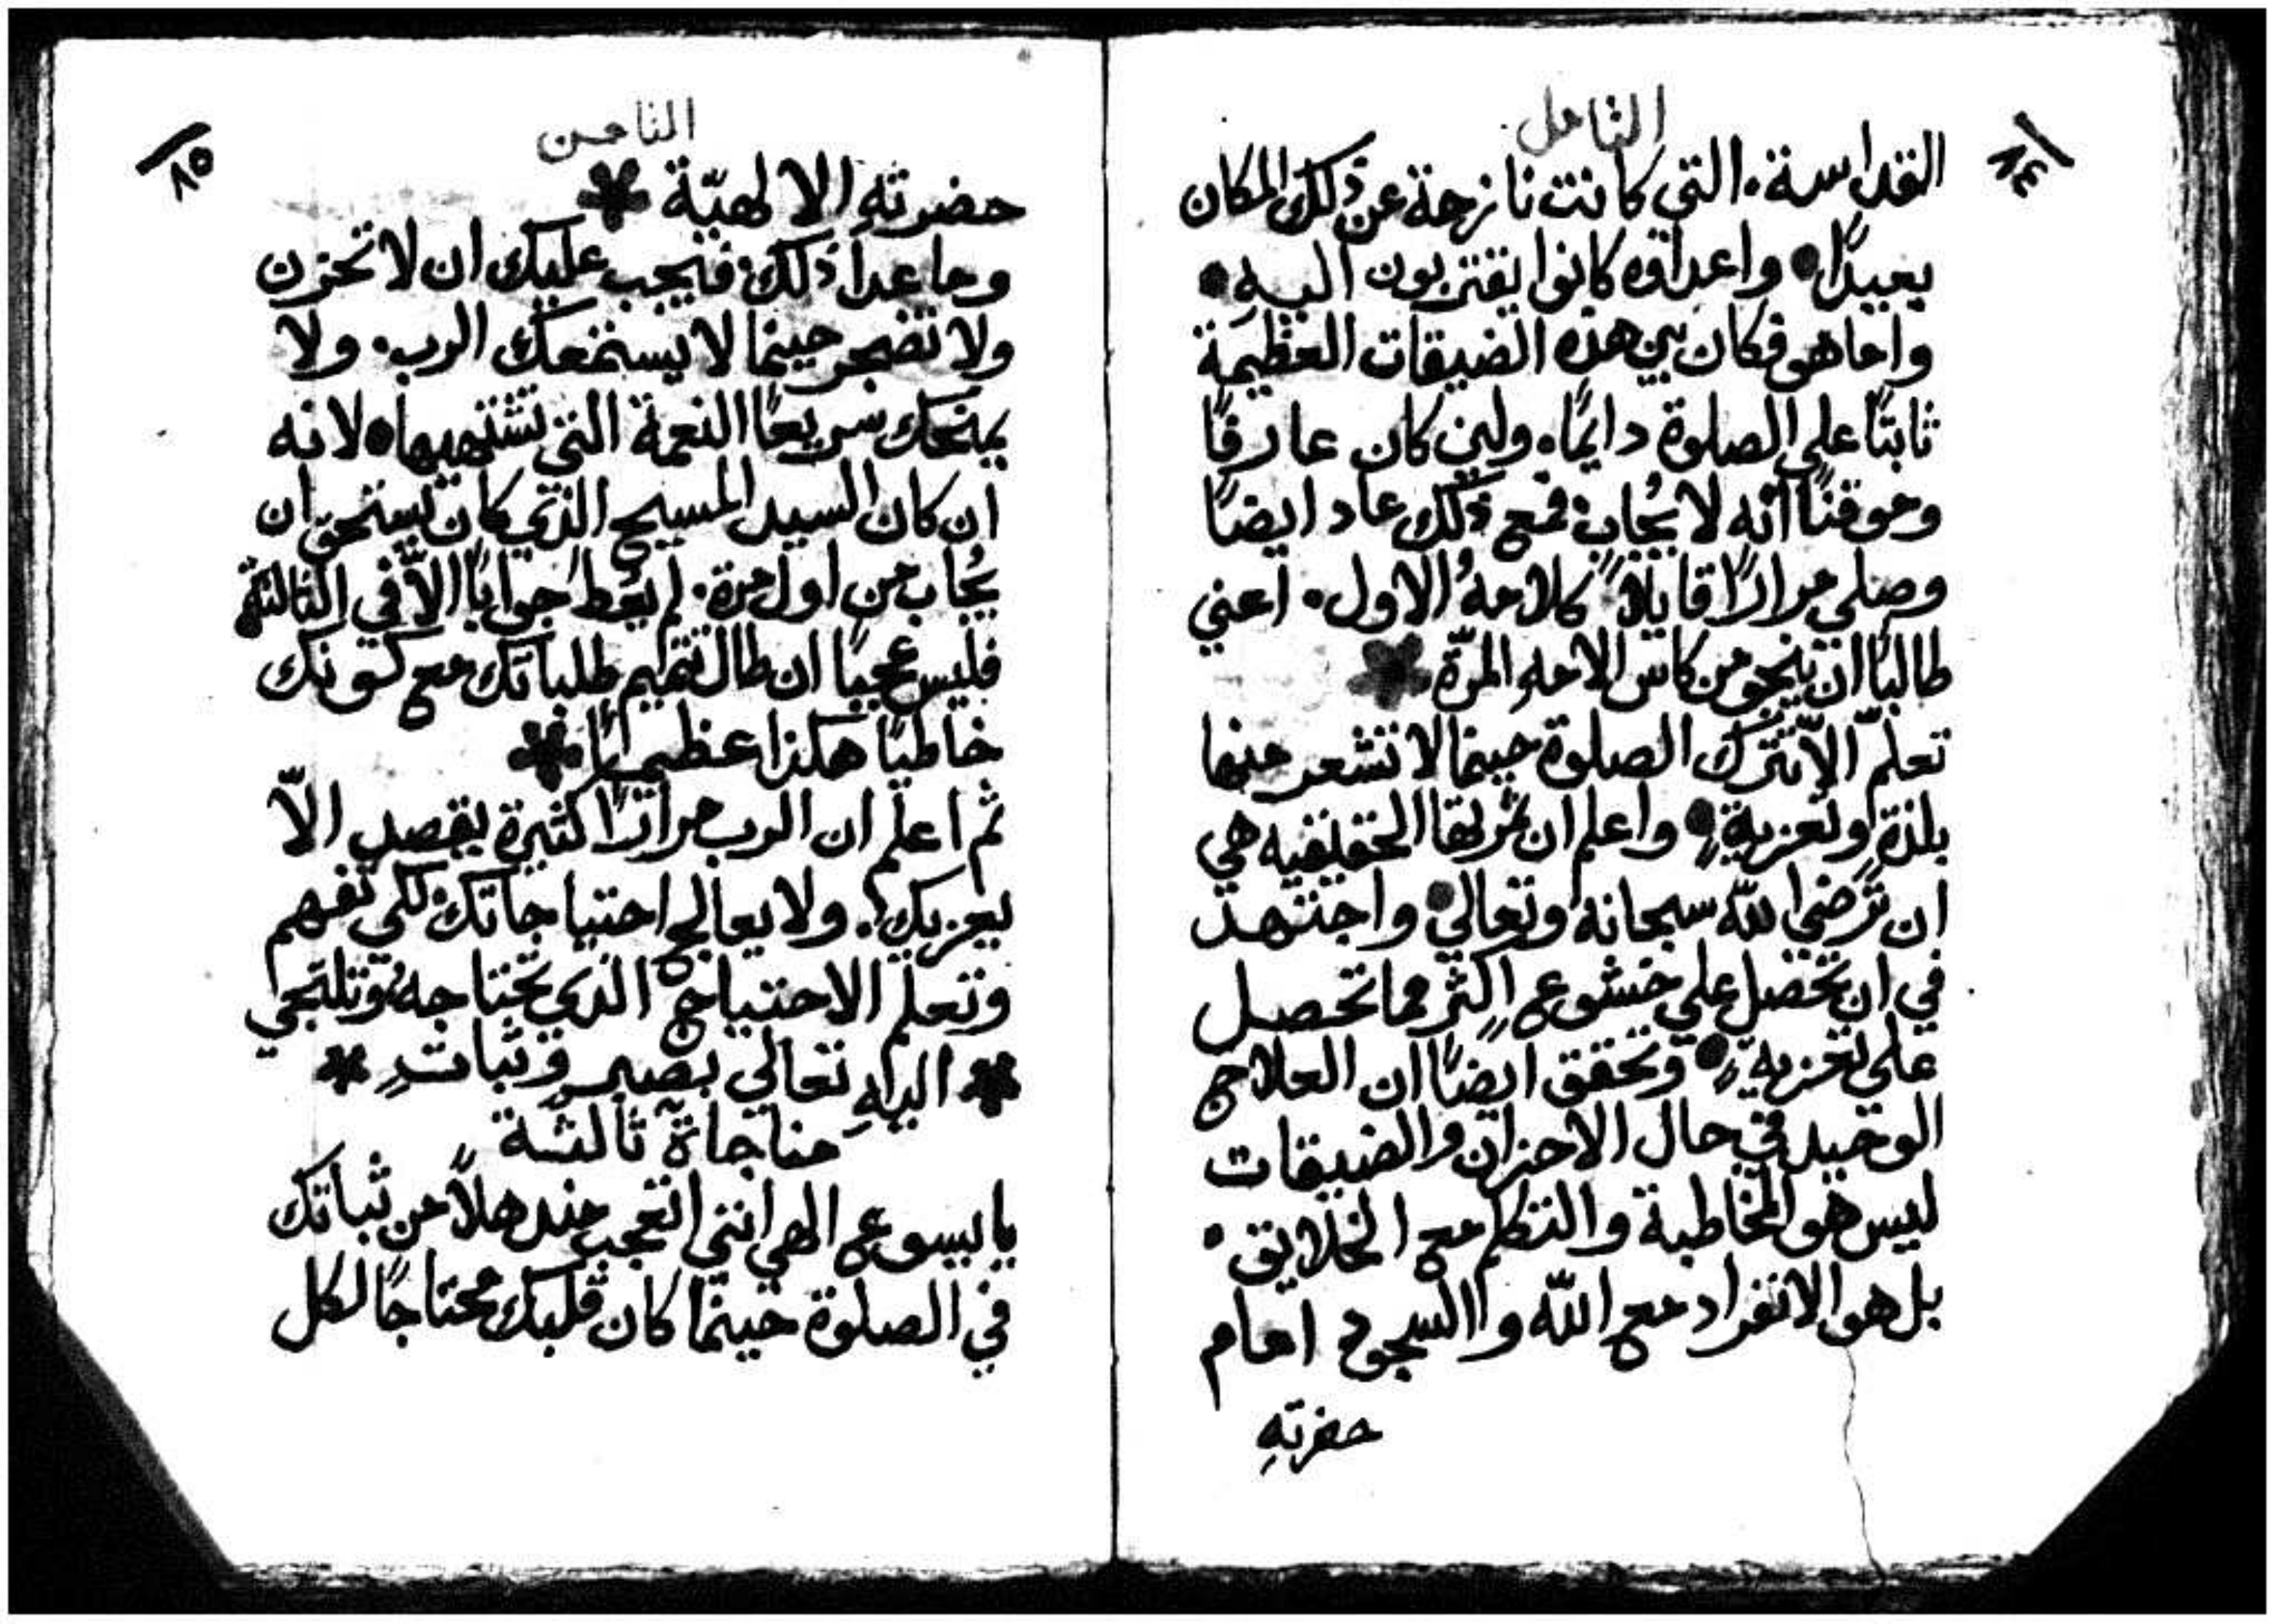 التامل
٨٤
القداسة. التي كانت نازحة عن ذلك المكان
بعيدًا. واعداوه كانوا يقتربون اليهِ.
واما هو فكان بين هذه الضيقات العظيمة
ثابتًا علي الصلوة دايمًا. ولين كان عارفًا
وموقنًا انه لا يُجاب: فمع ذلك عاد ايضًا
وصلي مرارًا قايلاً كلامهُ الاول. اعني
طالبًا ان ينجو من كاس الامهِ المرّة *
تعلّم الاّ تترك الصلوة حينما لا تشعر منها
بلذةٍ او تعزيةٍ. واعلم ان ثمرتها الحقيقيه هي
ان ترضي اللّه سبحانه وتعالي. واجتهد
في ان تحصل علي خشوعٍ اكثر مما تحصل
علي تعزيةٍ. وتحقق ايضًا ان العلاج
الوحيد في حال الاحزان والضيقات
ليس هو المخاطبة والتكلم مع الخلايق.
بل هو الانفراد مع اللّه واالسجود امام
حضرتهِ
الثامن
٨٥
حضرتهِ الالهيّة *
وما عدا ذلك: فيجب عليك ان لا تحزن
ولا تضجر حينما لا يستمعك الرب. ولا
يمنحك سريعًا النعمة التي تشتهيها. لانه
ان كان السيد المسيح الذي كان يستحقّ ان
يُجاب من اول مرة. لم يُعطَ جوابًا الاّ في الثالثة
فليس عجيبًا ان طال تتميم طلباتك مع كونك
خاطيًا هكذا عظيمًا *
ثم اعلم ان الرب مرارًا كثيرة يقصد الاّ
يعزيك. ولا يعالج احتياجاتك: لكي تفهم
وتعلم الاحتياج الذي تحتاجهُ وتلتجي
* اليهِ تعالي بصبرٍ وثباتٍ *
مناجاة ثالثة
يا يسوع الهي انني اتعجب مندهلاً من ثباتك
في الصلوة حينما كان قلبك محتاجًا لكل